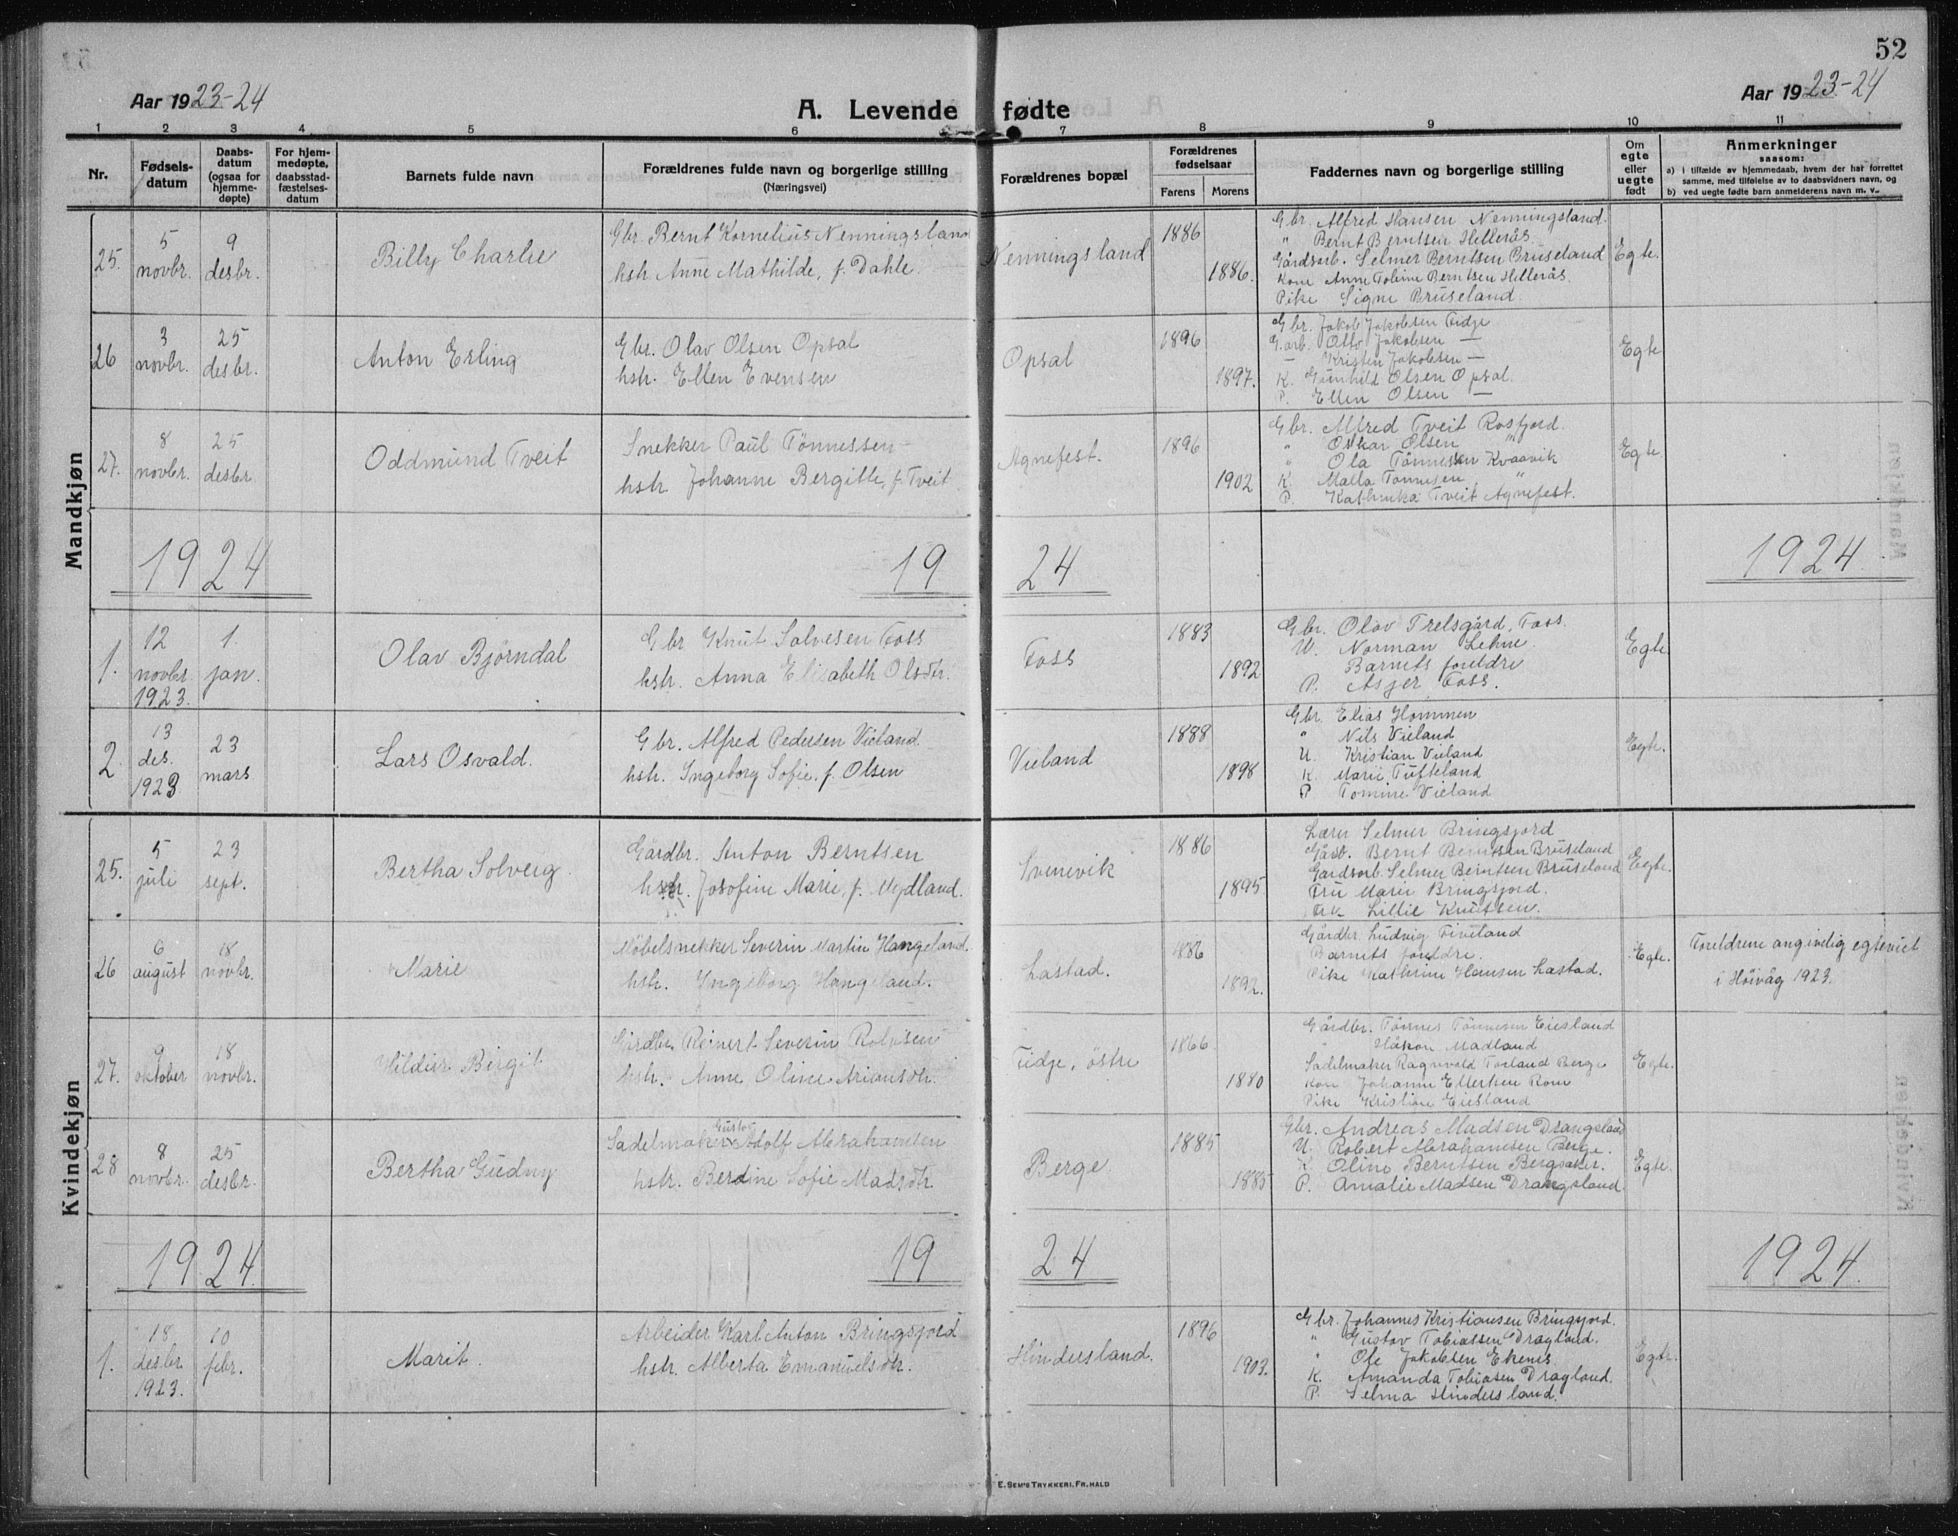 52
Aar 1923-24
A. Levende fødte
Aar 1923-24
1 2 3 4 5 6 7 8 9 10 11
Nr.
Fødsels-
datum
Daabs-
datum
(ogsaa for
hjemme-
døpte)
For hjem-
medøpte,
daabsstad-
fæstelses-
datum
Barnets fulde navn
Forældrenes fulde navn og borgerlige stilling
(Næringsvei)
Forældrenes bopæl
Forældrenes
fødselsaar
Farens Morens
Faddernes navn og borgerlige stilling
Om
egte
eller
uegte
født
Anmerkninger
saasom:
a) i tilfælde av hjemmedaab, hvem der har forrettet
samme, med tilføielse av to daabsvidners navn, og
b) ved uegte fødte barn anmelderens navn m. v.
Mandkjøn
25.
5
novbr.
9
desbr.
Billy Charlie
Gbr. Bernt Kornelius Nenningsland
hstr. Anne Mathilde, f. Dahle.
Nenningsland
1886
1886.
Gbr. Alfred Hansen Nenningsland.
" Bernt Berntsen Hellerås.
Gårdsarb. Selmer Berntsen Bruseland
Kone Anne Tobine Berntsen Hellerås.
Pike Signe Bruseland.
Egte.
26
3
novbr.
25
desbr.
Anton Erling
Gbr. Olav Olsen Opsal
hstr. Ellen Evensen
Opsal
1896
1897.
Gbr. Jakob Jakobsen Fidje
G.arb. Olav Jakobsen —
— Kristen Jakobsen —
K. Gunhild Olsen Opsal.
P. Ellen Olsen —
Egte
27.
8
novbr.
25
desbr.
Oddmund Tveit
Snekker Paul Tönnessen
hstr. Johanne Bergitte, f. Tveit.
Agnefest.
1896
1902
Gbr. Alfred Tveit Rosfjord.
" Oskar Olsen "
" Ola Tönnessen Kvaavik
K. Malla Tönnesen "
P. Kathinka Tveit Agnefest.
Egte
1924 1924 1924
1.
12
novbr.
1923.
1.
jan.
Olav Bjørndal
Gbr Knut Salvesen Foss
hstr. Anna Elisabeth Olsdtr.
Foss
1883
1892
Gbr. Olav Trelsgård, Foss.
U. Norman Lehne.
Barnets foreldre
P. Asjer Foss.
Egte
2.
13
des.
1923
23
mars
Lars Osvald.
Gbr. Alfred Pedersen Vieland.
hstr. Ingeborg Sofie, f. Olsen
Vieland
1888
1898
Gbr. Elias Hommen
" Nils Vieland
U. Kristian Vieland
K. Marie Tufteland
P Tomine Vieland
Egte.
Kvindekjøn
25.
5
juli
23
sept.
Bertha Solveig
Gårdbr. Anton Berntsen
hstr. Josofine Marie, f. Mydland.
Svenevik
1886
1895
Lærer Selmer Bringsjord
Gårdb. Bernt Berntsen Bruseland
Gardsarb. Selmer Berntsen Bruseland
Fru Marie Bringsjord.
Frk. Lillie Knutsen.
Egte.
26
6
august
18
novbr.
Marie
Möbelsnekker Severin Martin Hangeland.
hstr. Yngeborg Hangeland.
Lastad.
1886
1892.
Gårdbr. Ludvig Fiveland
Barnets foreldre.
Pike Kathrine Hansen Lastad.
Egte.
Foreldrene angivelig egteviet
i Höivåg 1923.
27.
9
oktober
18
novbr.
Hildur Birgit
Gårdbr. Reinert Severin Rolvsen
hstr. Anne Oline Arionsdtr.
Fidje, östre
1866
1880
Gårdbr. Tönnes Tönnesen Eiesland
" Håkon Madland
Sadelmaker Ragnvald Torland Berge
Kone Johanne Ellertsen Rom
Pike Kristine Eiesland
Egte.
28
8
novbr.
25
desbr.
Bertha Gudny
Sadelmaker Gustav Adolf Abrahamsen
hstr. Berdine Sofie Madsdtr.
Berge.
1885
1885
Gbr. Andreas Madsen Drangsland
U. Robert Abrahamsen Berge.
K. Oline Berntsen Bergsaker.
P. Amalie Madsen Drangsland
Egte.
1924. 1924 1924.
1.
18
desbr.
1923.
10
febr.
Marit.
Arbeider Karl Anton Bringsjord
hstr. Alberta Emanuelsdtr.
Hindersland.
1896
1903.
Gbr. Johannes Kristiansen Bringsjord.
" Gustav Tobiassen Dragland.
" Ole Jakobsen Ekenes.
K. Amanda Tobiasen Dragland.
P. Selma Hindersland.
Egte.
E. Sem's Trykkeri. Fr.hald